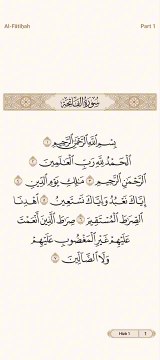 Al-Fātiḥah
Part 1
سُورَةُ الفَاتِحَةِ
بِسْمِ اللَّهِ الرَّحْمَٰنِ الرَّحِيمِ ١
الْحَمْدُ لِلَّهِ رَبِّ الْعَالَمِينَ ٢
الرَّحْمَٰنِ الرَّحِيمِ ٣ مَالِكِ يَوْمِ الدِّينِ ٤
إِيَّاكَ نَعْبُدُ وَإِيَّاكَ نَسْتَعِينُ ٥ اهْدِنَا
الصِّرَاطَ الْمُسْتَقِيمَ ٦ صِرَاطَ الَّذِينَ أَنْعَمْتَ
عَلَيْهِمْ غَيْرِ الْمَغْضُوبِ عَلَيْهِمْ
وَلَا الضَّالِّينَ ٧
Hizb 1
1